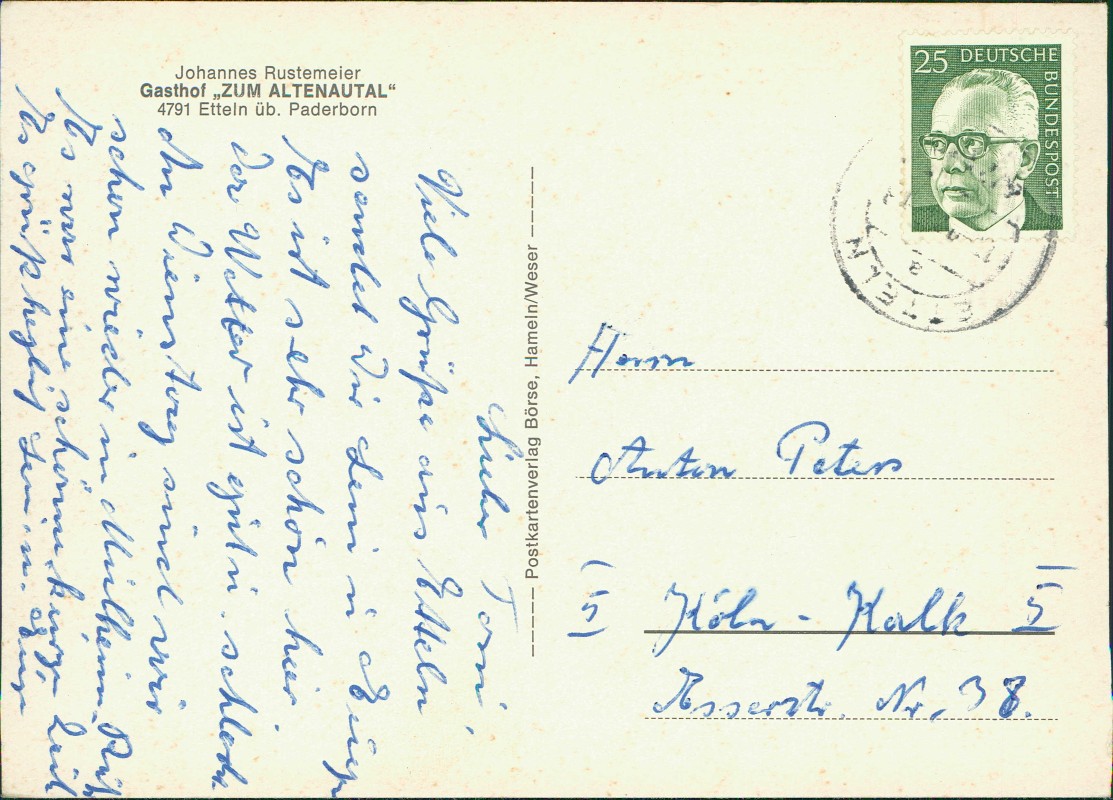 Johannes Rustemeier
Gasthof „ZUM ALTENAUTAL“
4791 Etteln üb. Paderborn
25 DEUTSCHE
BUNDESPOST
ETTELN
a
Lieber Toni,
Viele Grüße aus Etteln
sendet Dir
Es ist sehr schön hier
Der Wetter ist gut u. schlecht
An Dienstag sind wir
schon wieder in Mülheim
Es war eine schöne kurze Zeit
Es grüßt
----- Postkartenverlag Börse, Hameln/Weser -----
Herrn
Anton Peters
5 Köln - Kalk I
Nr. 38.